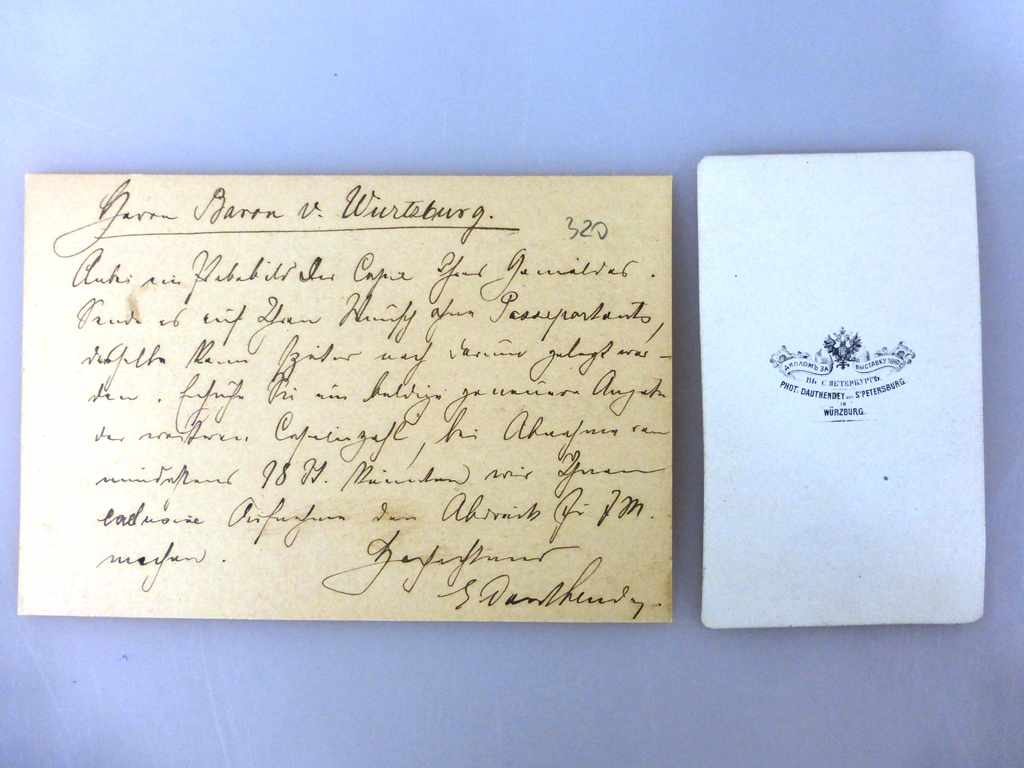 Herrn Baron v. Wurtzburg.
320
Anbei ein Probebild der Copie Ihres Gemäldes.
Sende es auf Ihren Wunsch ohne Passepartouts,
dasselbe kann später noch darum gelegt wer-
den. Ersuche Sie um baldige genauere Angabe
der weiteren Copienzahl, bei Abnahme von
mindestens 18 St. könnten wir Ihnen
exclusive Aufnahme den Abdruck zu 7 M.
machen.
Hochachtend
E Dauthendey.
ДИПЛОМЪ ЗА ВЫСТАВКУ
ВЪ С ПЕТЕРБУРГѢ.
PHOT. DAUTHENDEY AUS ST PETERSBURG.
IN
WÜRZBURG.